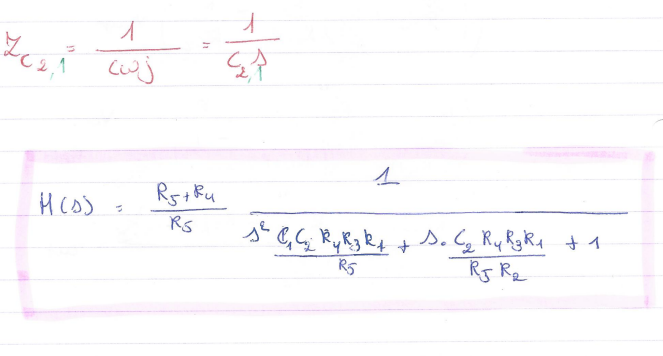 Z_{C_{2,1}} = 1/(Cωj) = 1/(C_{2,1} s)
H(s) = (R5+R4)/R5 · 1/(s² (C1 C2 R4 R3 R1)/R5 + s. (C2 R4 R3 R1)/(R5 R2) + 1)